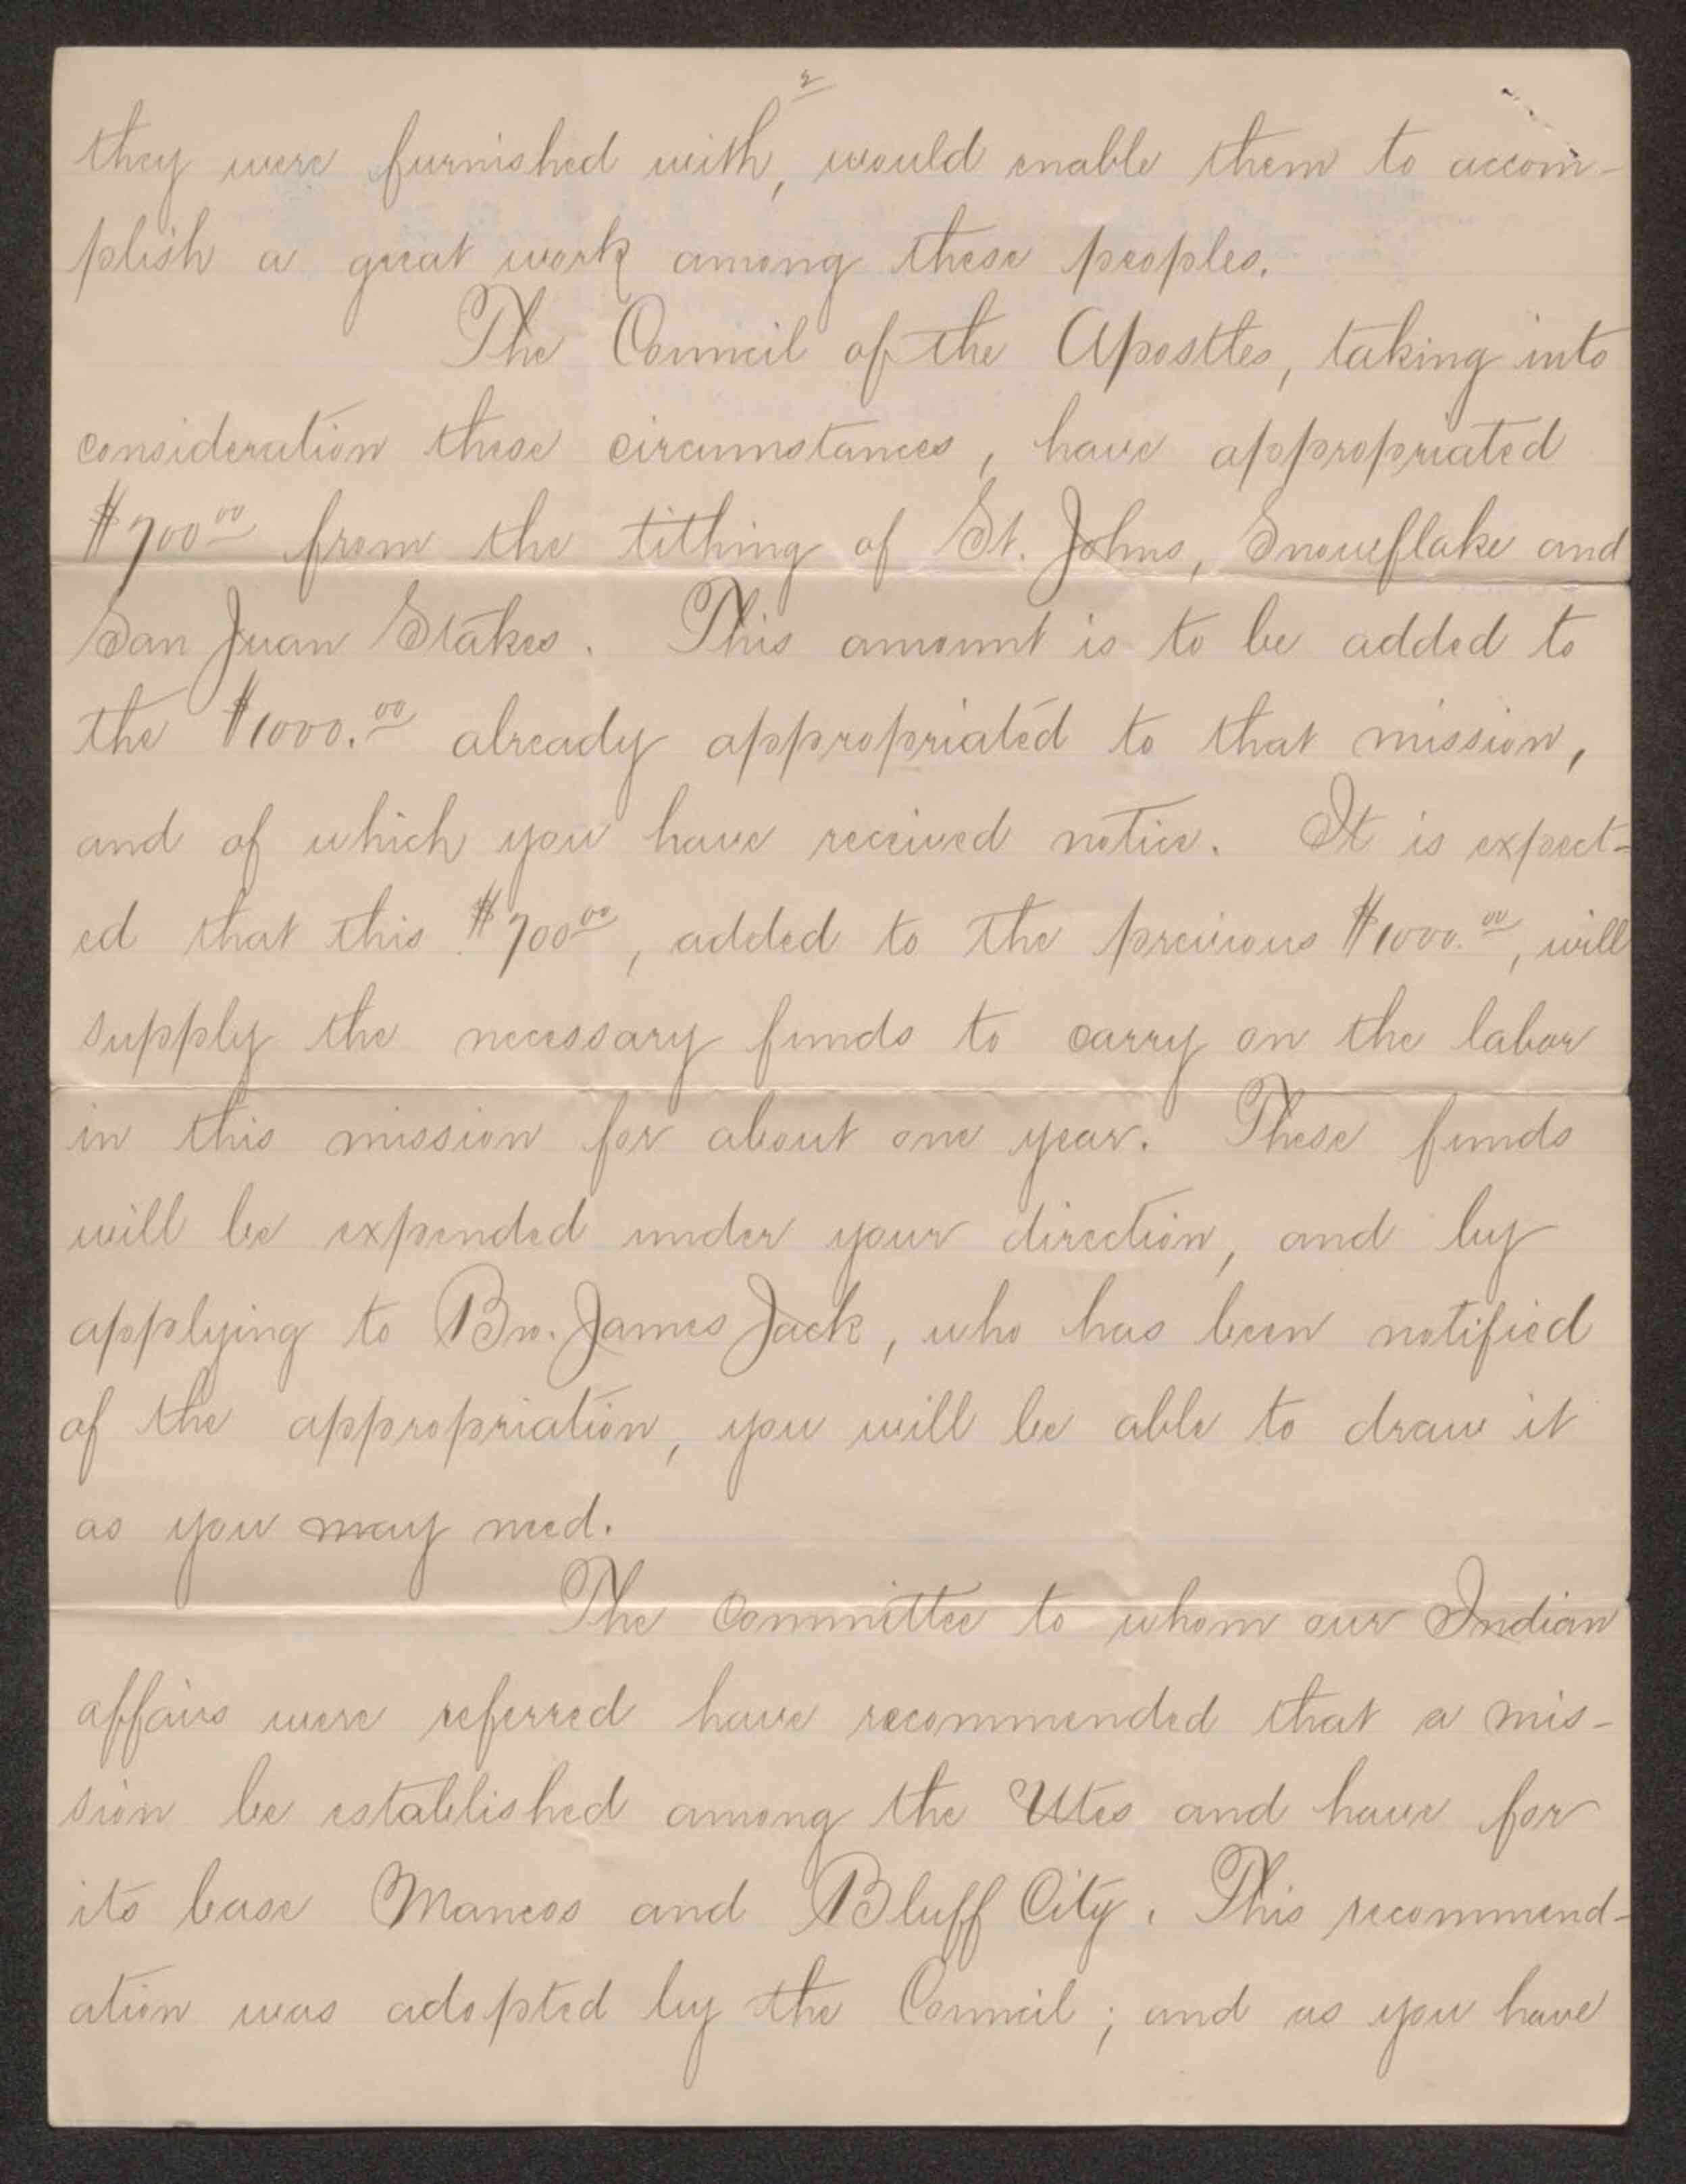 2
they were furnished with, would enable them to accom-
plish a great work among these peoples.
The Council of the Apostles, taking into
consideration these circumstances, have appropriated
$700.00 from the tithing of St. Johns, Snowflake and
San Juan Stakes. This amount is to be added to
the $1000.00 already appropriated to that mission,
and of which you have received notice. It is expect-
ed that this $700.00, added to the previous $1000.00, will
supply the necessary funds to carry on the labor
in this mission for about one year. These funds
will be expended under your direction, and by
applying to Bro. James Jack, who has been notified
of the appropriation, you will be able to draw it
as you may need.
The Committee to whom our Indian
affairs were referred have recommended that a mis-
sion be established among the Utes and have for
its base Mancos and Bluff City. This recommend-
ation was adopted by the Council; and as you have